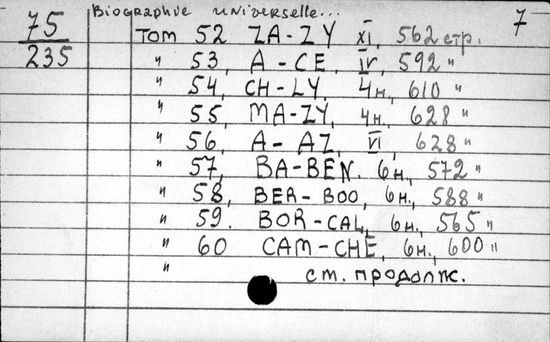 Biographie universelle... 7
75
235
Том 52 ZA-ZY XI, 562 стр.
" 53, A-CE, IV, 592 "
" 54, CH-LY, 4н, 610 "
" 55, MA-ZY, 4н, 628 "
" 56, A-AZ, VI, 628 "
" 57, BA-BEN. 6н, 572 "
" 58, BER-BOO, 6н., 588 "
" 59. BOR-CAL, 6н., 565 "
" 60 CAM-CHE, 6н., 600 "
" см. продолж.